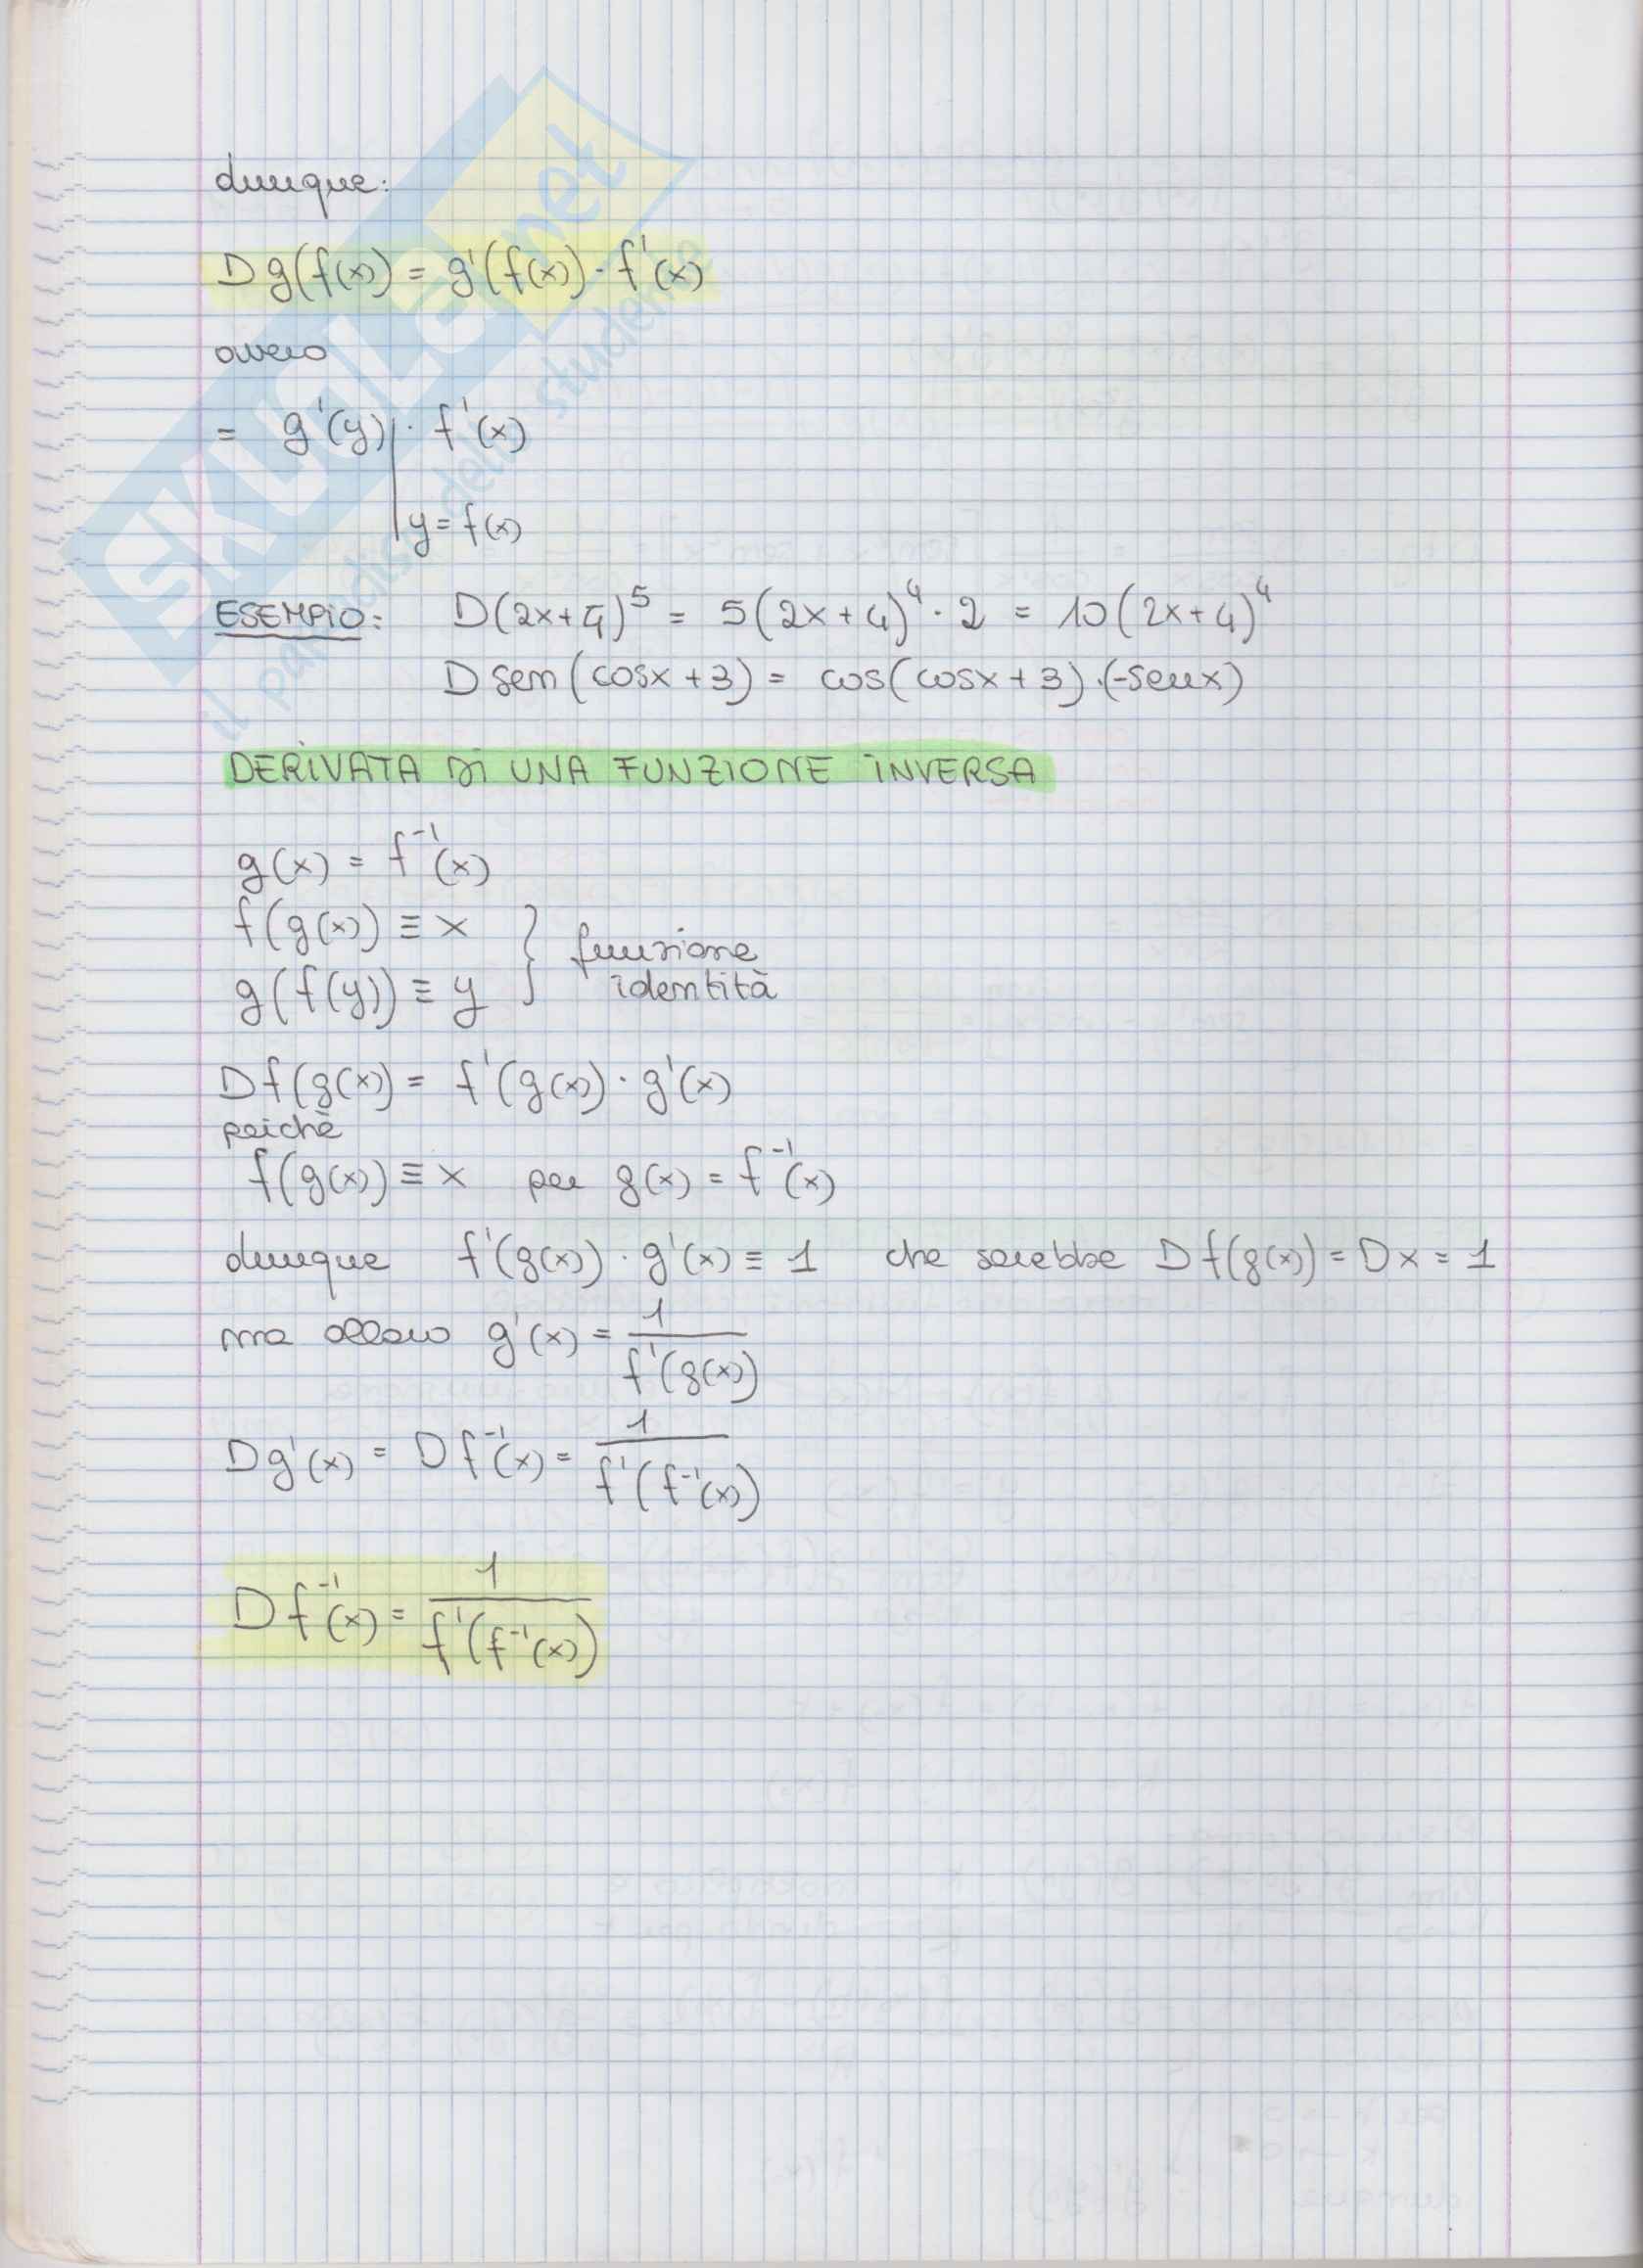 dunque:
D g(f(x)) = g'(f(x)) · f'(x)
ovvero
= g'(y)| · f'(x)
y = f(x)
ESEMPIO: D(2x+4)⁵ = 5(2x+4)⁴ · 2 = 10(2x+4)⁴
D sen(cosx+3) = cos(cosx+3)·(-senx)
DERIVATA DI UNA FUNZIONE INVERSA
g(x) = f⁻¹(x)
f(g(x)) ≡ x
g(f(y)) ≡ y } funzione identità
D f(g(x)) = f'(g(x)) · g'(x)
poiché
f(g(x)) ≡ x per g(x) = f⁻¹(x)
dunque f'(g(x)) · g'(x) ≡ 1 che sarebbe D f(g(x)) = D x = 1
ma allora g'(x) = 1 / f'(g(x))
D g'(x) = D f⁻¹(x) = 1 / f'(f⁻¹(x))
D f⁻¹(x) = 1 / f'(f⁻¹(x))
SKUOLA.net
il paradiso dello studente